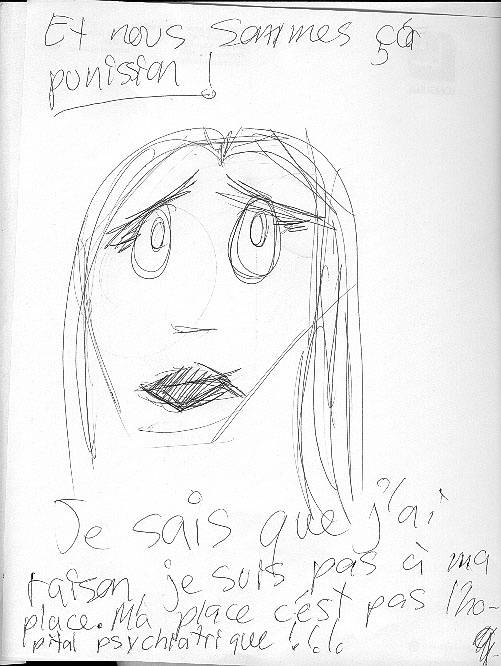 Et nous sommes ça
punission !
Je sais que j'ai
raison, je suis pas à ma
place. Ma place c'est pas l'ho-
pital psychiatrique !!!